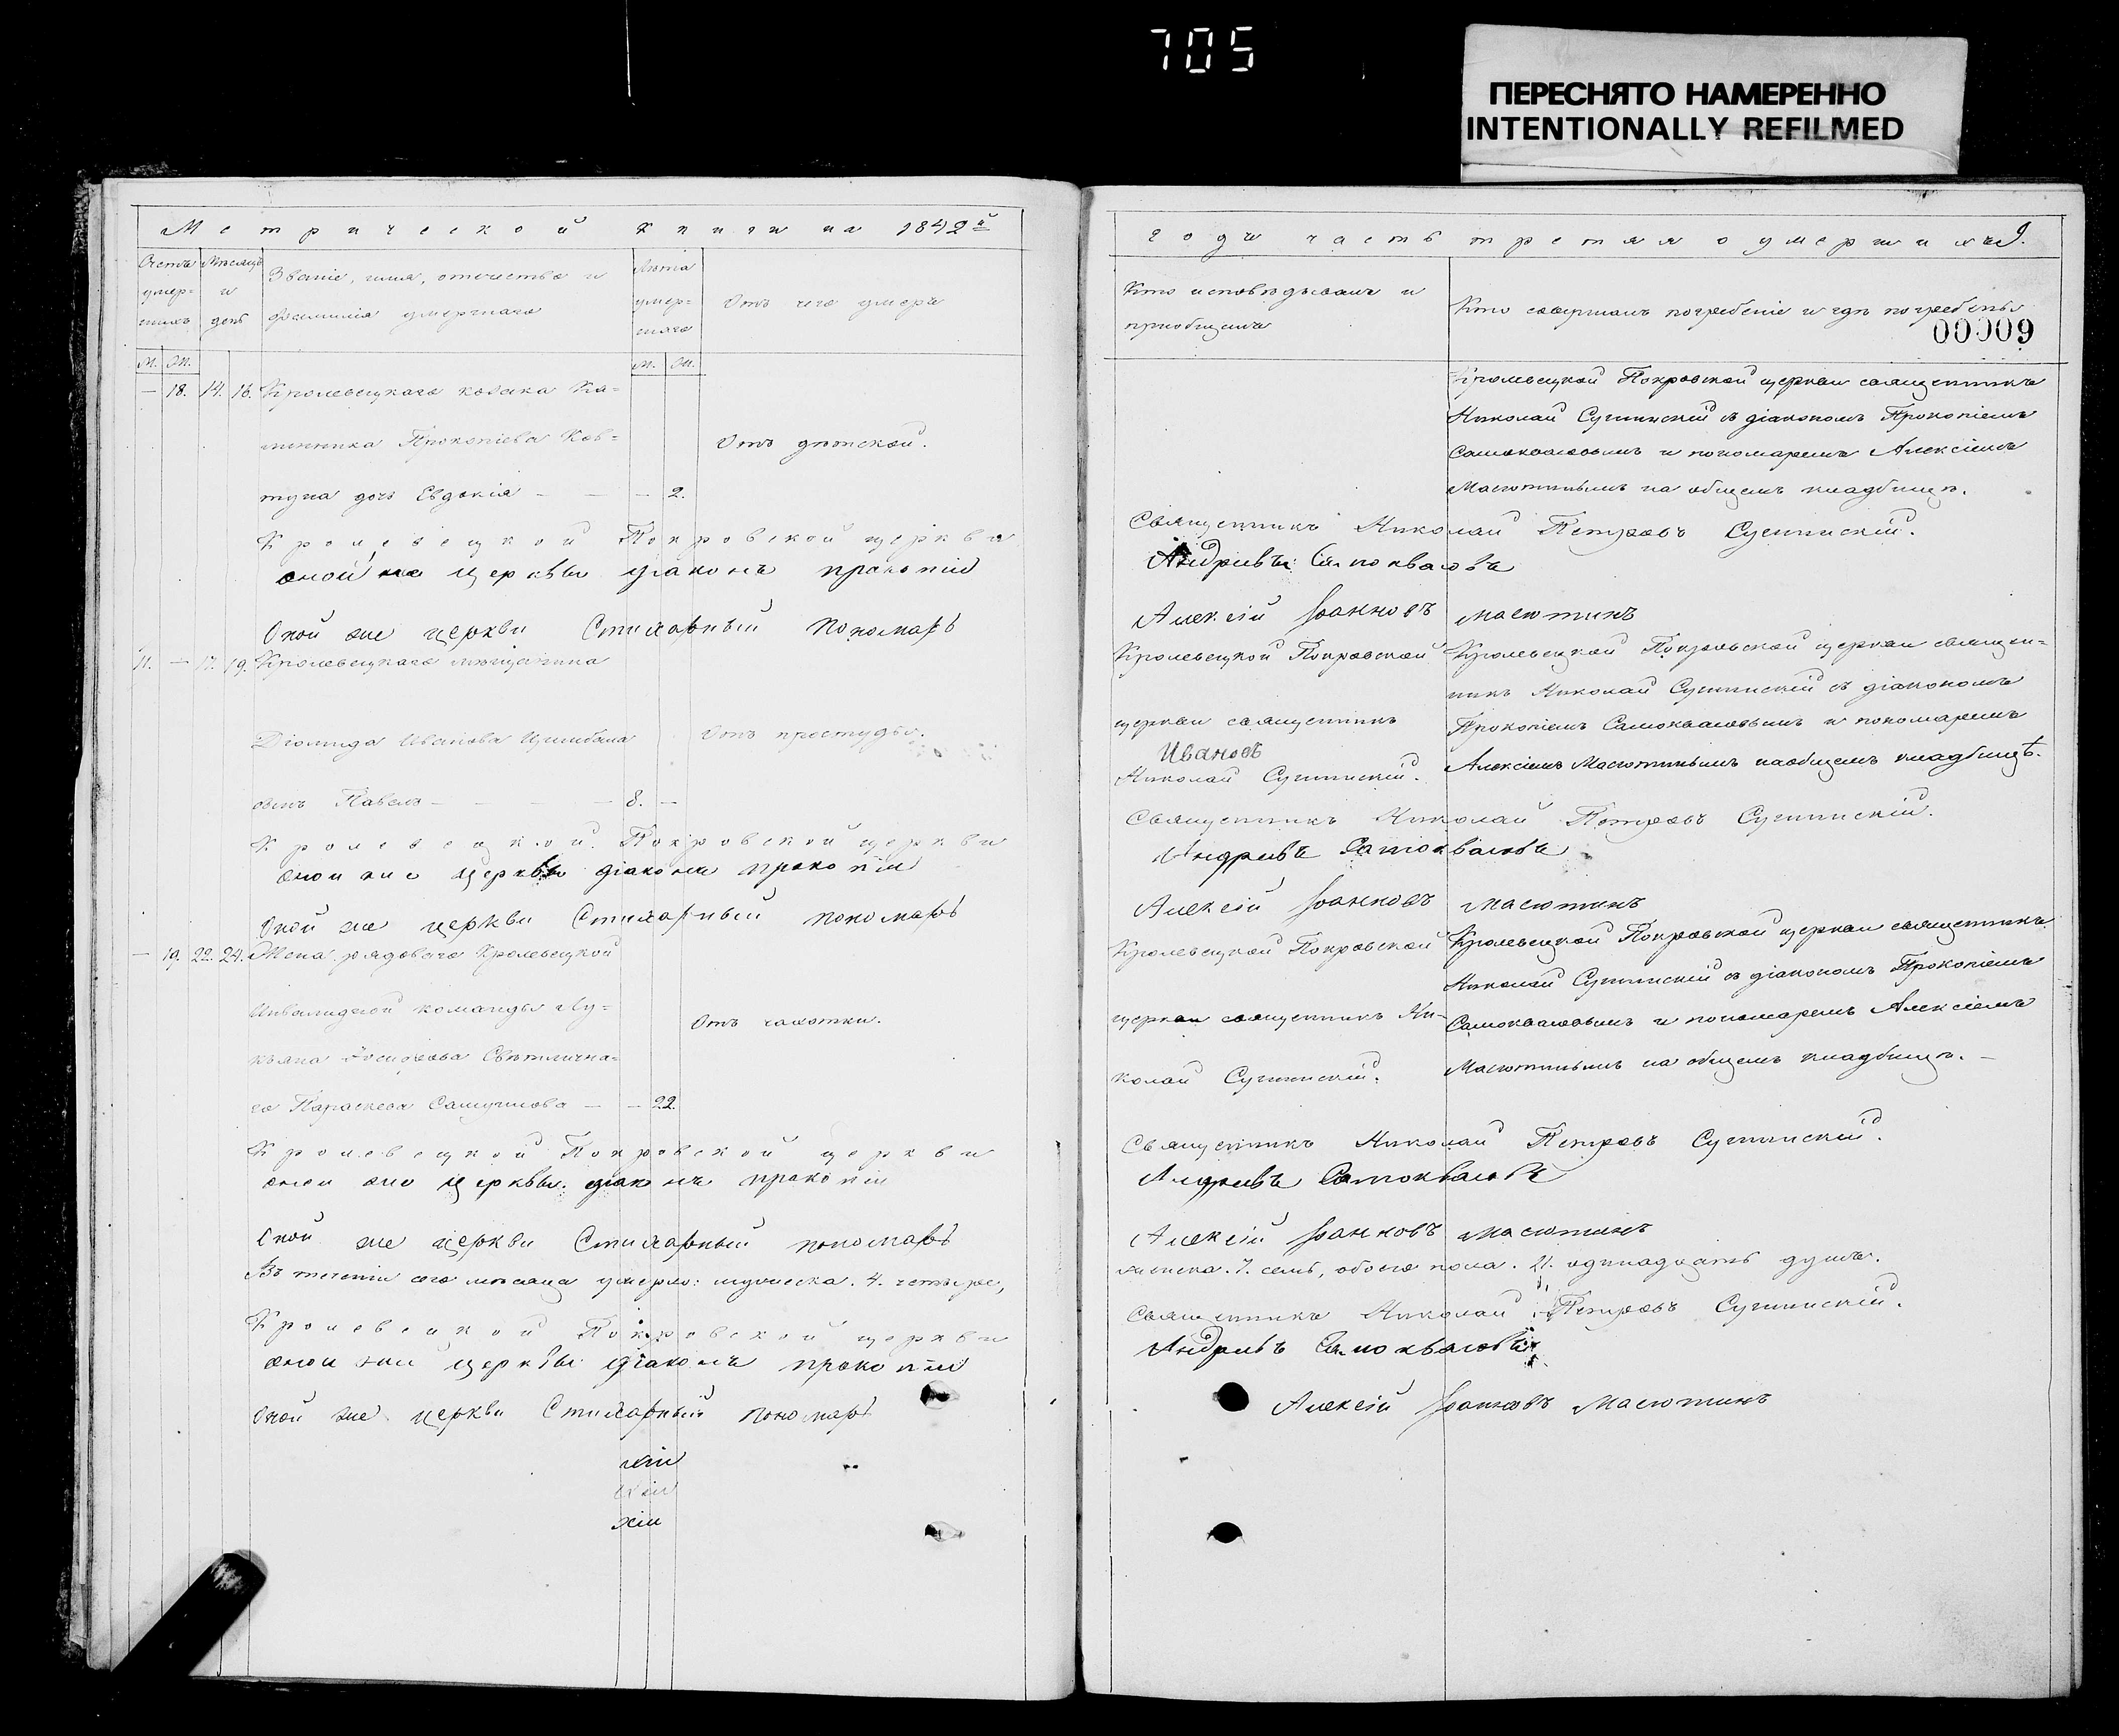 705
ПЕРЕСНЯТО НАМЕРЕННО
INTENTIONALLY REFILMED
Метрической книги на 1842й
Счетъ умер- шихъ
Мѣсяцъ и день
Званіе, имя, отечество и фамилія умершаго
Лѣта умер- шаго
Отъ чего умеръ
М. Ж.
М. Ж.
— 18. 14. 16. Кролевецкаго козака Ка-
линника Прокопіева Ков-
Отъ дѣтской.
туна дочь Евдокія — — — 2.
Кролевецкой Покровской церкви
оной же церкви діаконъ прокопій
Оной же церкви Стихарный пономарь
11. — 17. 19. Кролевецкаго мѣщанина
Діомида Иванова
Отъ простуды.
сынъ Павелъ — — — — 8. —
Кролевецкой Покровской церкви
оной же церкви діаконъ прокопій
Оной же церкви Стихарный пономарь
— 19. 22. 24. Жена рядоваго Кролевецкой
Инвалидной команды Лу-
Отъ чахотки.
кьяна Свѣтлична-
го Параскева — — 22.
Кролевецкой Покровской церкви
оной же церкви діаконъ прокопій
Оной же церкви Стихарный пономарь
Въ теченіи сего мѣсяца умерло: мужеска. 4. четыре,
Кролевецкой Покровской церкви
оной же церкви діаконъ прокопій
Оной же церкви Стихарный пономарь
хіи
хіи
годъ часть третяя о умершихъ 9.
Кто исповѣдывалъ и
пріобщалъ
Кто совершалъ погребеніе и гдѣ погребены
00009
Кролевецкой Покровской церкви священникъ
Николай Сучинскій съ діакономъ Прокопіемъ
Самоквасовымъ и пономаремъ Алексіемъ
Масютинымъ на общемъ кладбищѣ.
Священникъ Николай Петровъ Сучинскій.
Андріевъ Самоквасовъ
Алексій Іоанновъ Масютинъ
Кролевецкой Покровской
церкви священникъ
Ивановъ
Николай Сучинскій.
Кролевецкой Покровской церкви священ-
никъ Николай Сучинскій съ діакономъ
Прокопіемъ Самоквасовымъ и пономаремъ
Алексіемъ Масютинымъ на общемъ кладбищѣ.
Священникъ Николай Петровъ Сучинскій.
Андріевъ Самоквасовъ
Алексій Іоанновъ Масютинъ
Кролевецкой Покровской
церкви священникъ Ни-
колай Сучинскій.
Кролевецкой Покровской церкви священникъ
Николай Сучинскій съ діакономъ Прокопіемъ
Самоквасовымъ и пономаремъ Алексіемъ
Масютинымъ на общемъ кладбищѣ. —
Священникъ Николай Петровъ Сучинскій.
Андріевъ Самоквасовъ
Алексій Іоанновъ Масютинъ
женска. 7. семь, обоего пола. 11. одинадцать душъ.
Священникъ Николай Петровъ Сучинскій.
Андріевъ Самоквасовъ
Алексій Іоанновъ Масютинъ